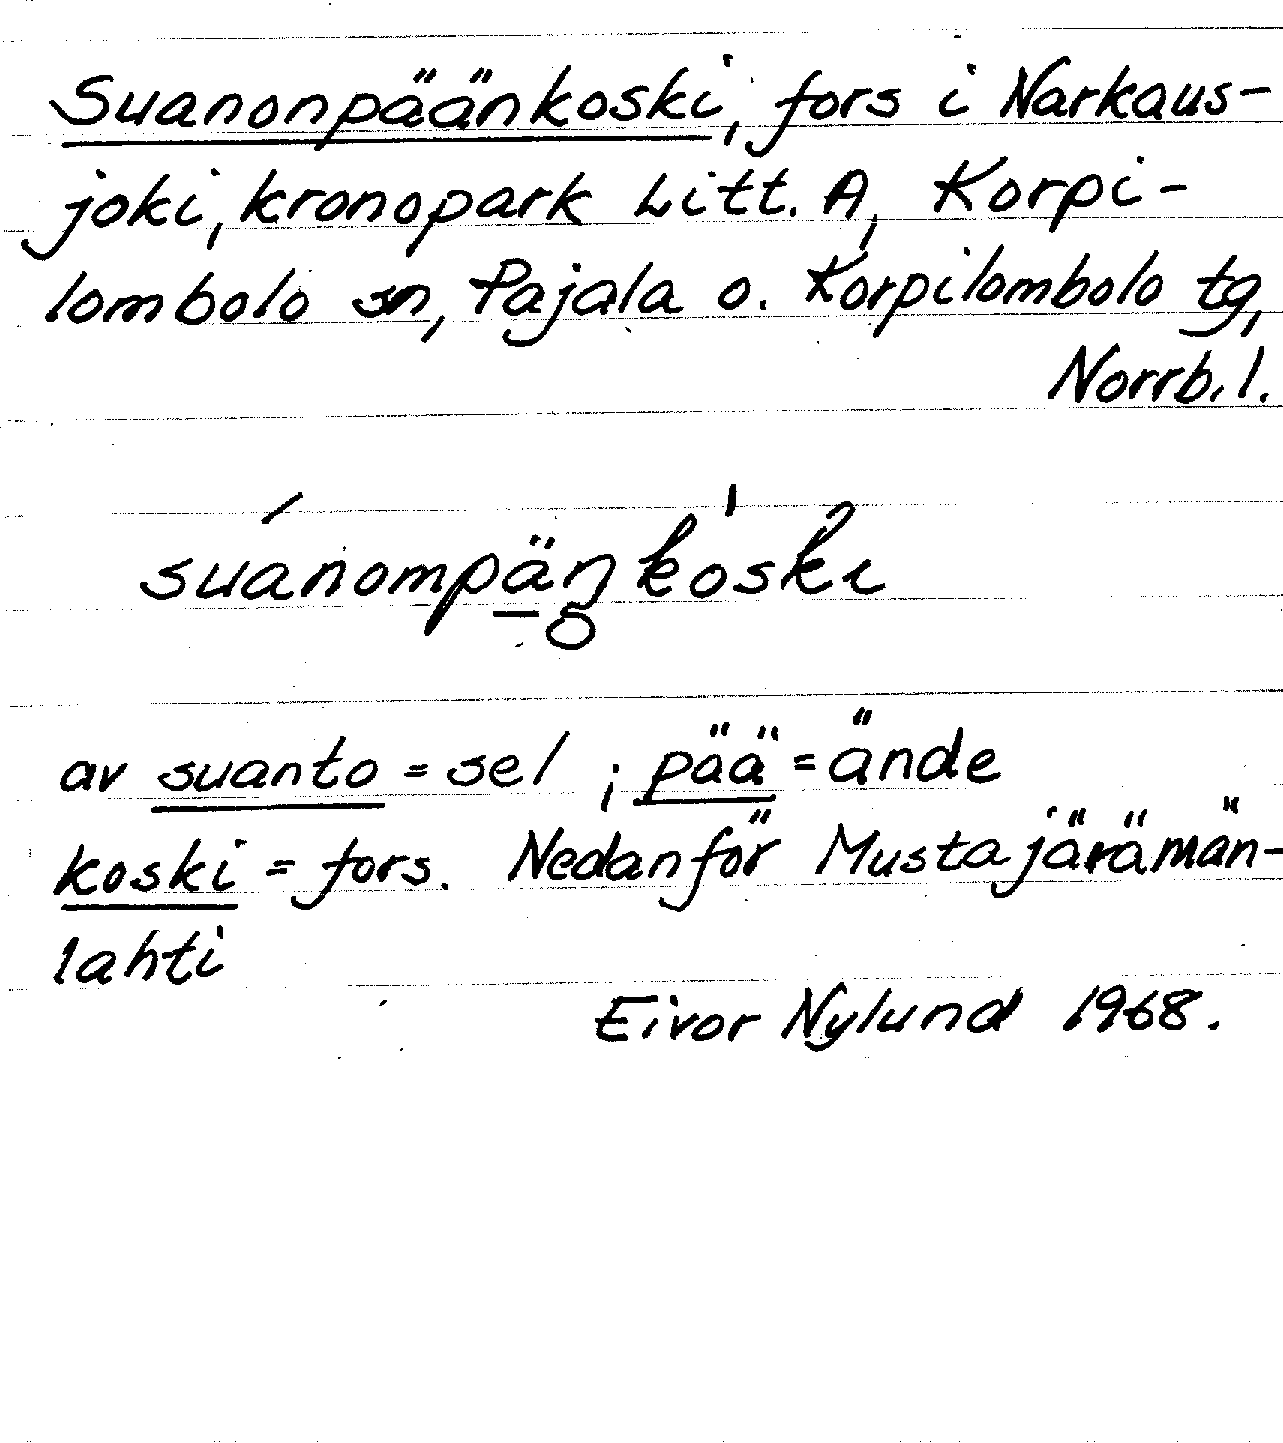 Suanonpäänkoski, fors i Narkaus-
joki, kronopark Litt. A, Korpi-
lombolo sn, Pajala o. Korpilombolo tg,
Norrb. l.
suanompä̱ŋ̥kòskɩ
av suanto = sel ; pää = ände
koski = fors. Nedanför Mustajärämän-
lahti
Eivor Nylund 1968.